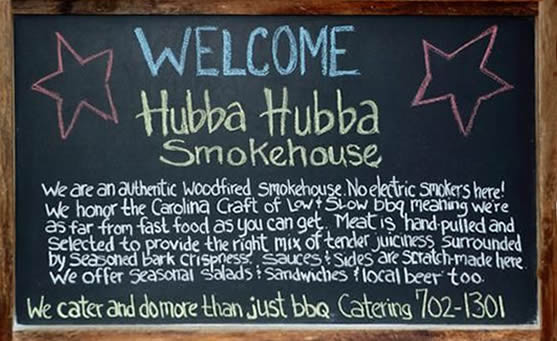 WELCOME
Hubba Hubba
Smokehouse
We are an authentic woodfired smokehouse. No electric smokers here!
We honor the Carolina Craft of Low & Slow bbq meaning we're
as far from fast food as you can get. Meat is hand-pulled and
selected to provide the right mix of tender juiciness surrounded
by seasoned bark crispness. Sauces & Sides are scratch-made here.
We offer seasonal salads & sandwiches & local beer too.
We cater and do more than just bbq. Catering 702-1301